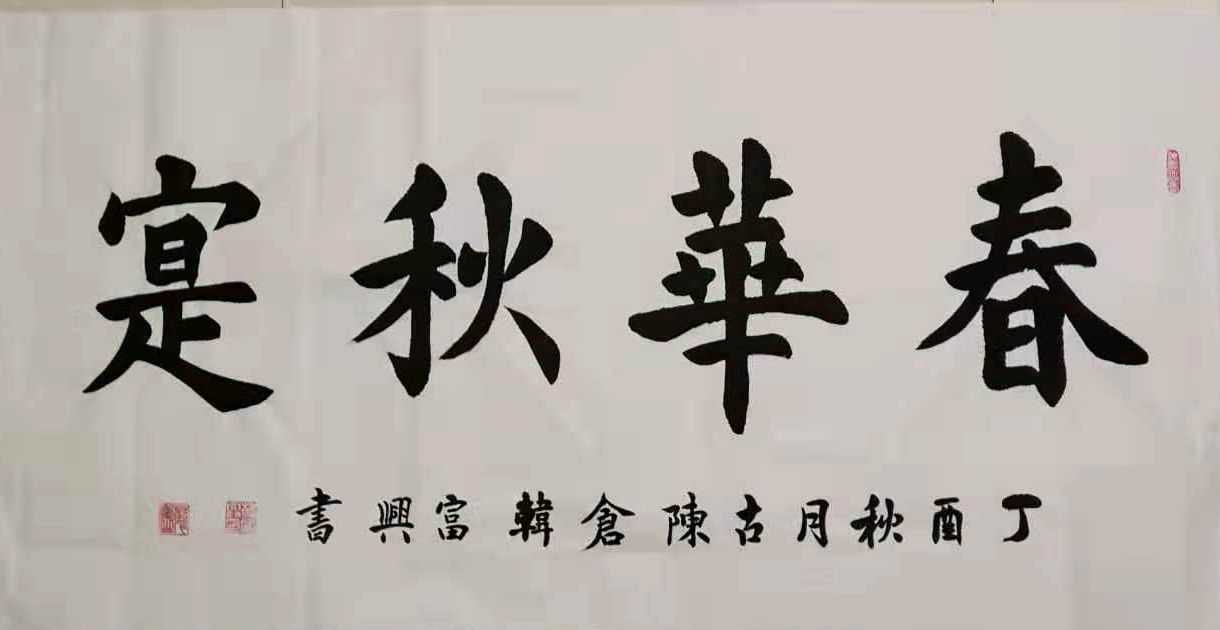 春華秋寔
丁酉秋月古陳倉韓富興書